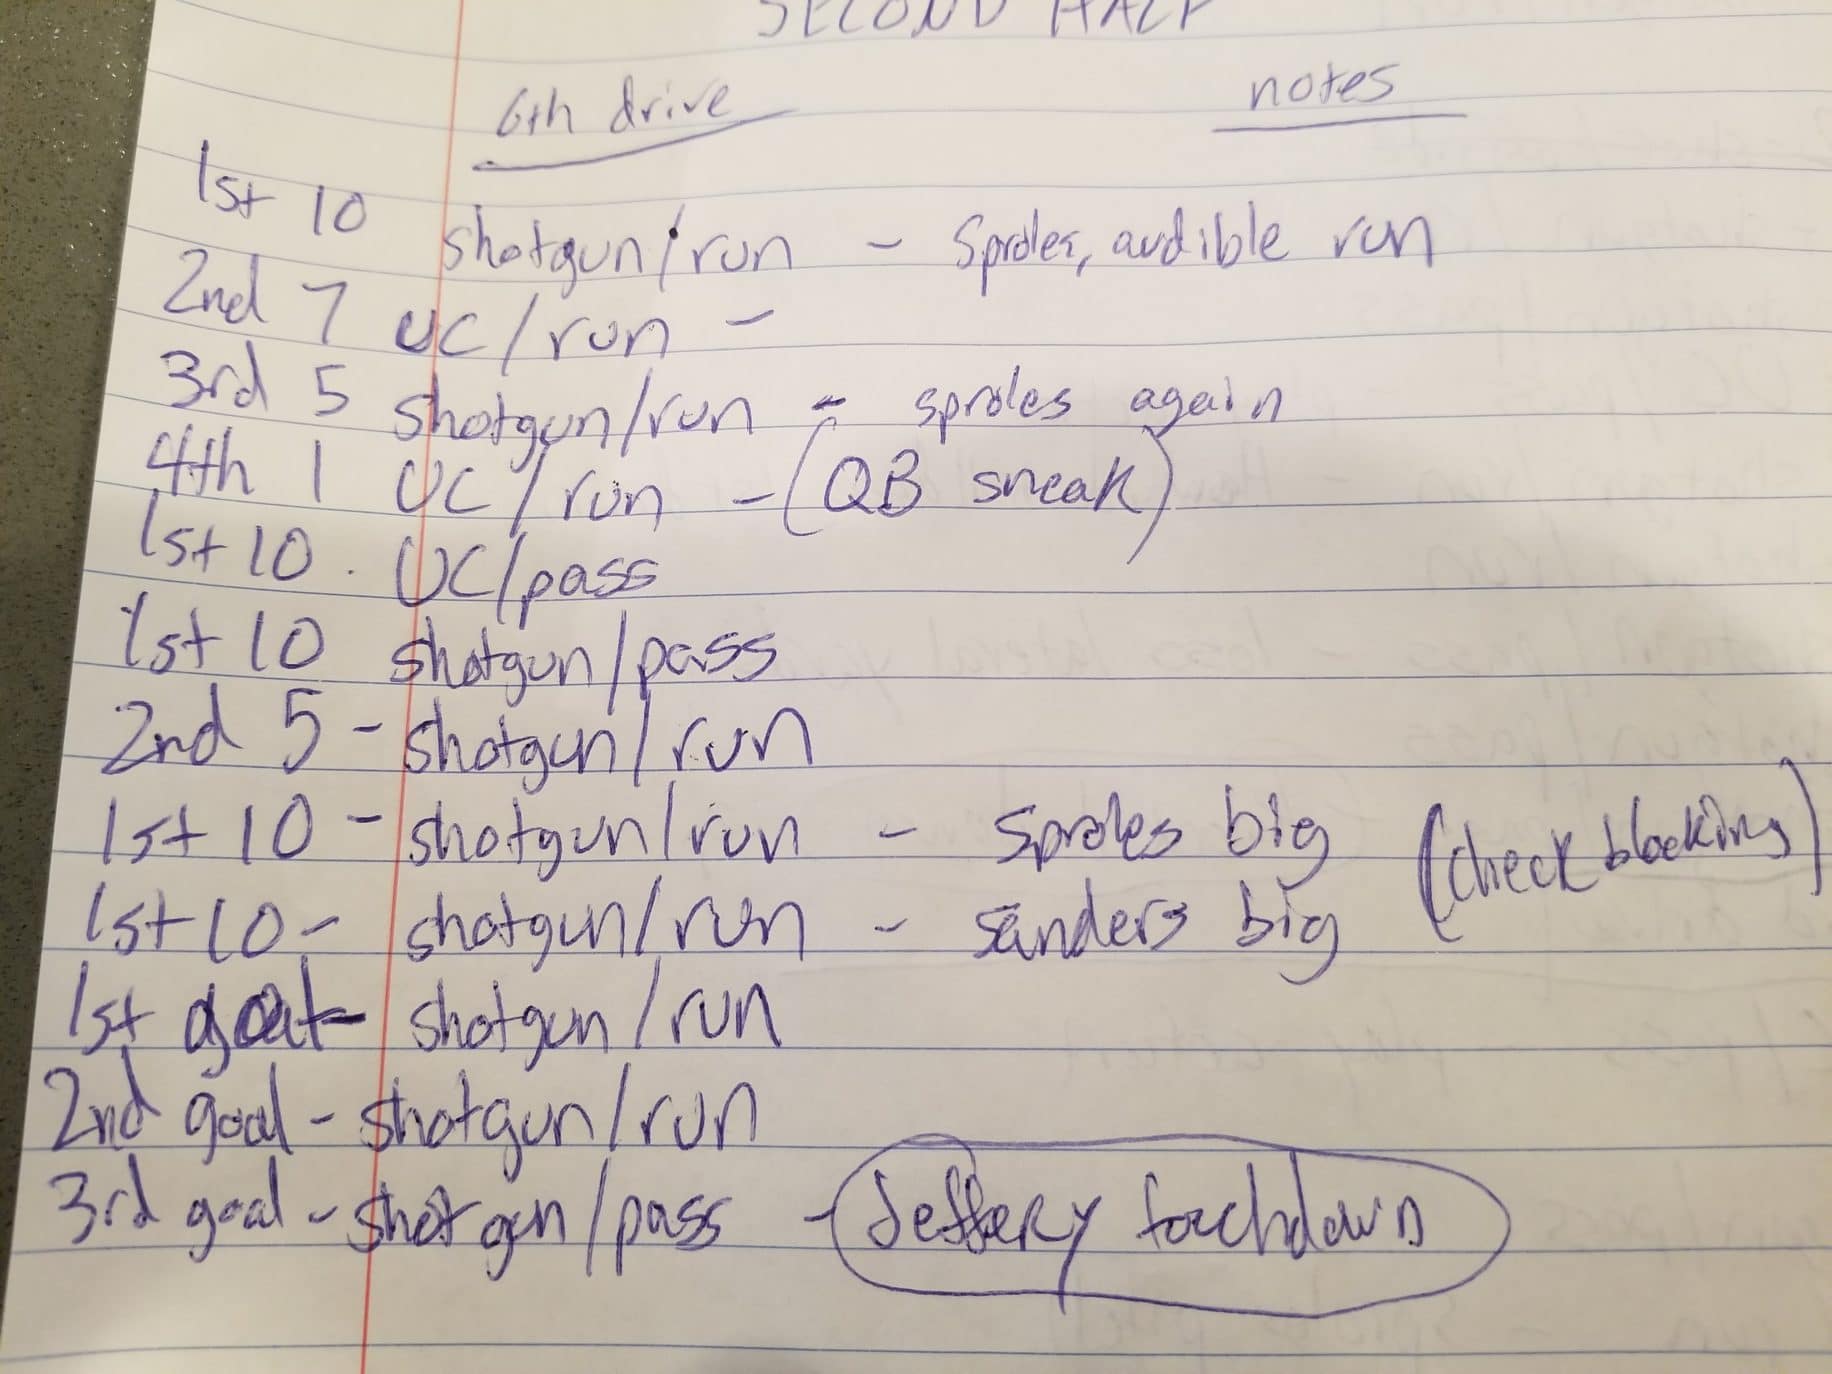 SECOND HALF
6th drive notes
1st 10 shotgun/run - Sproles, audible run
2nd 7 UC/run -
3rd 5 shotgun/run - sproles again
4th 1 UC/run - (QB sneak)
1st 10 . UC/pass
1st 10 shotgun/pass
2nd 5 - shotgun/run
1st 10 - shotgun/run - Sproles big (check blocking)
1st 10 - shotgun/run - sanders big
1st goal - shotgun/run
2nd goal - shotgun/run
3rd goal - shotgun/pass - Jeffery touchdown